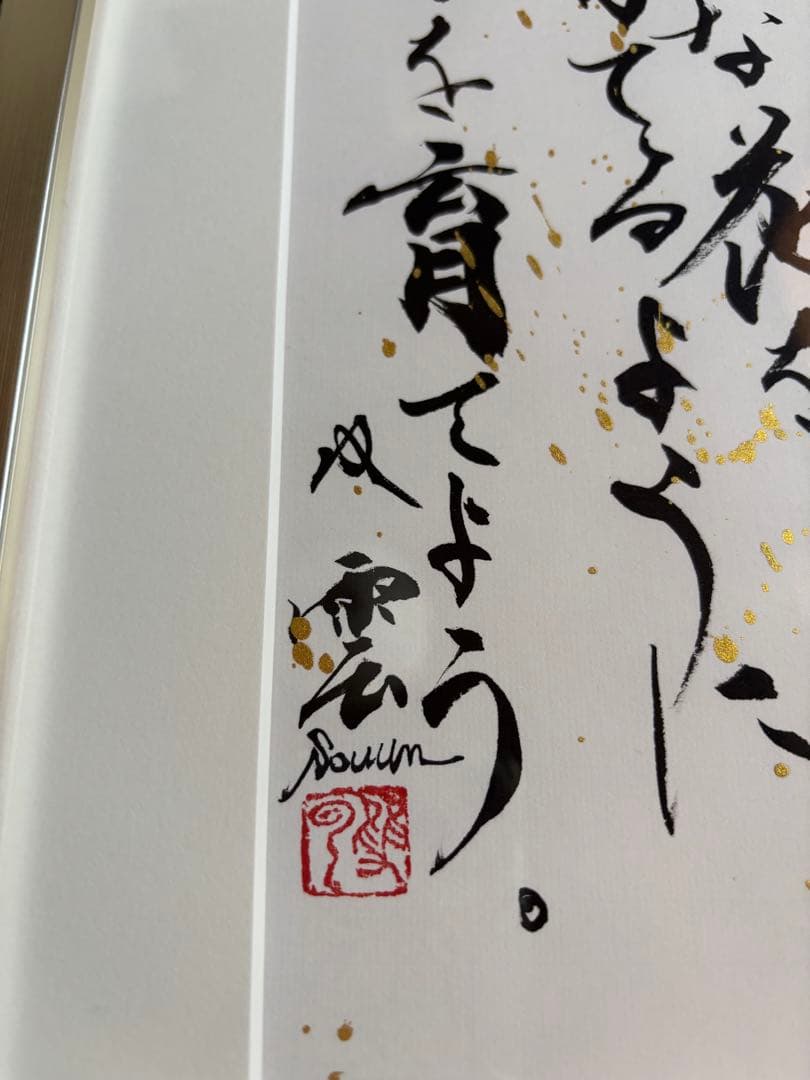 な花を
てるように
を育てよう。
双雲
Souun